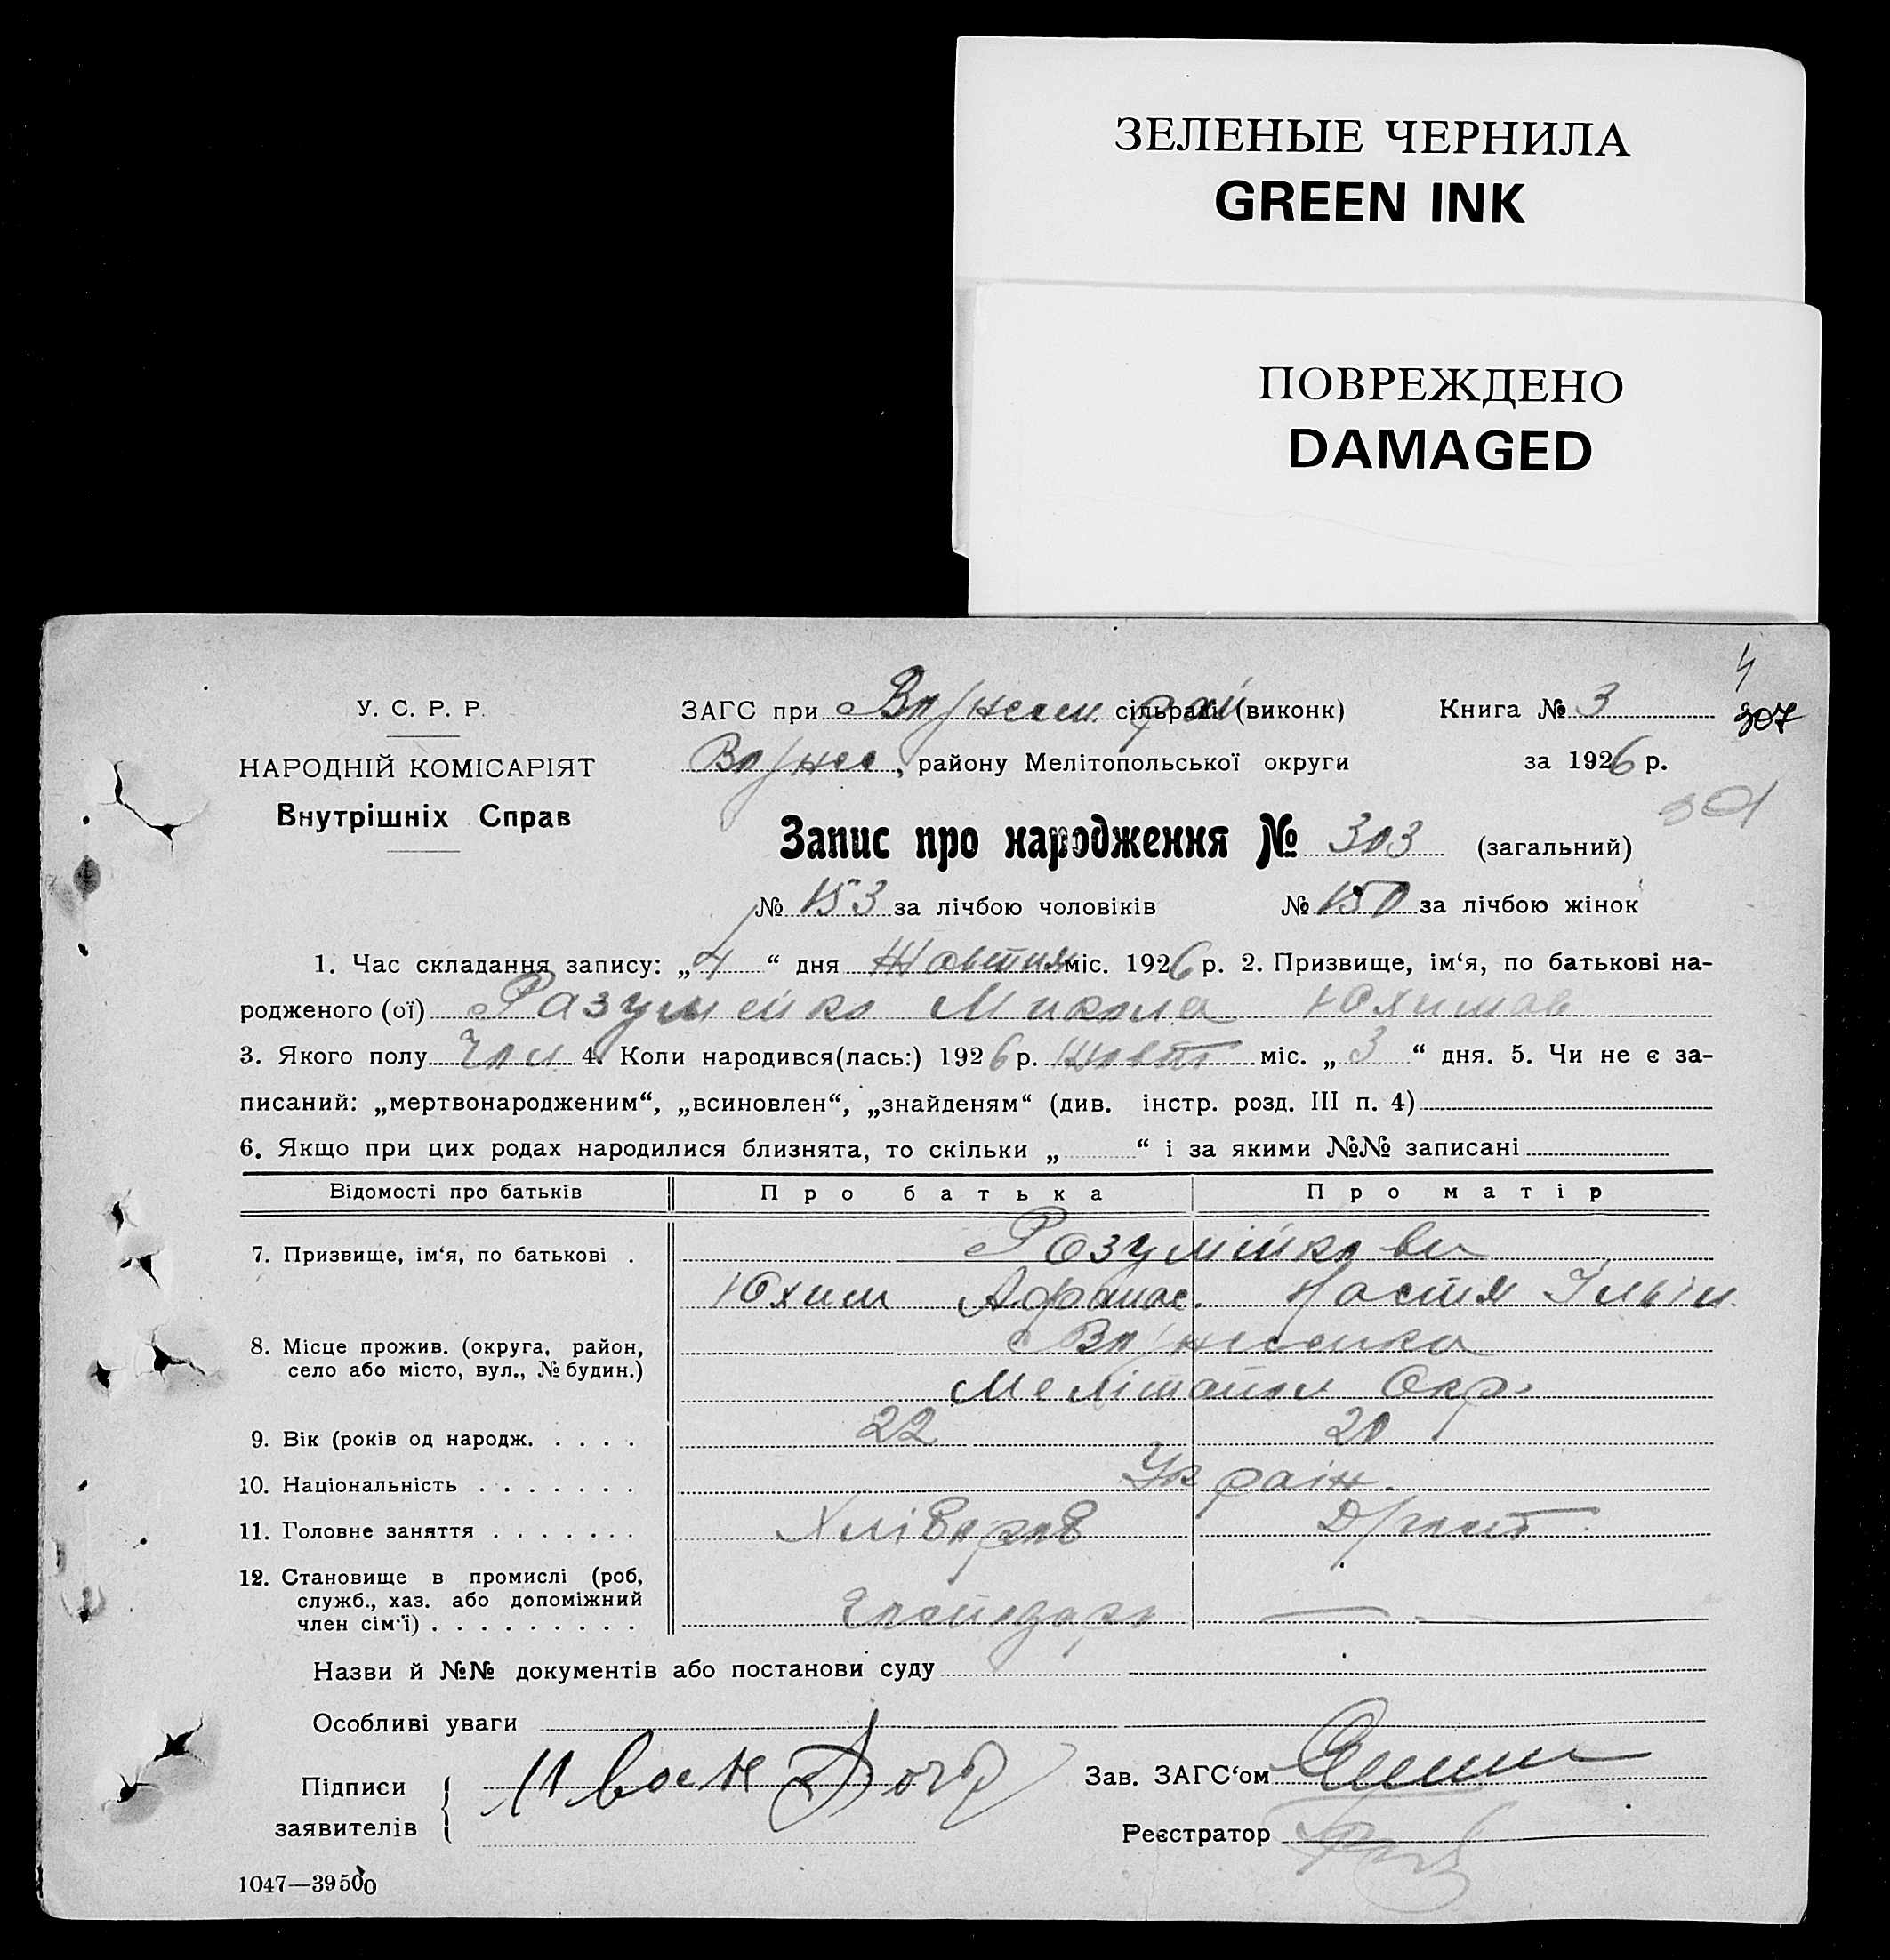 ЗЕЛЕНЫЕ ЧЕРНИЛА
GREEN INK
ПОВРЕЖДЕНО
DAMAGED
4
307
У. С. Р. Р.
НАРОДНІЙ КОМІСАРІЯТ
Внутрішніх Справ
ЗАГС при Вознесен. рай сільраді (виконк) Книга № 3
Вознес, району Мелітопольської округи за 1926 р.
Запис про народження № 303 (загальний)
№ 153 за лічбою чоловіків № 150 за лічбою жінок
1. Час складання запису: „4“ дня Жовтня міс. 1926 р. 2. Призвище, ім‘я, по батькові на-
родженого (ої) Разумейко Микола Юхимов
3. Якого полу Чол 4. Коли народився(лась:) 1926 р. Жовт міс. „3“ дня. 5. Чи не є за-
писаний: „мертвонародженим“, „всиновлен“, „знайденям“ (див. інстр. розд. III п. 4)
6. Якщо при цих родах народилися близнята, то скільки „ “ і за якими №№ записані
Відомості про батьків Про батька Про матір
7. Призвище, ім‘я, по батькові . Розумійкови
Юхим Афанас. Настя Ільін.
8. Місце прожив. (округа, район, Вознесенка
село або місто, вул., № будин.) Мелітопол Окр.
9. Вік (років од народж. . . . . 22 20
10. Національність . . . . . . . Украін.
11. Головне заняття . . . . . . . Хлібороб
12. Становище в промислі (роб,
служб., хаз. або допоміжний
член сім‘ї) . . . . . . . . .
Назви й №№ документів або постанови суду
Особливі уваги
Підписи
заявителів
Зав. ЗАГС‘ом
Реєстратор
1047—39500